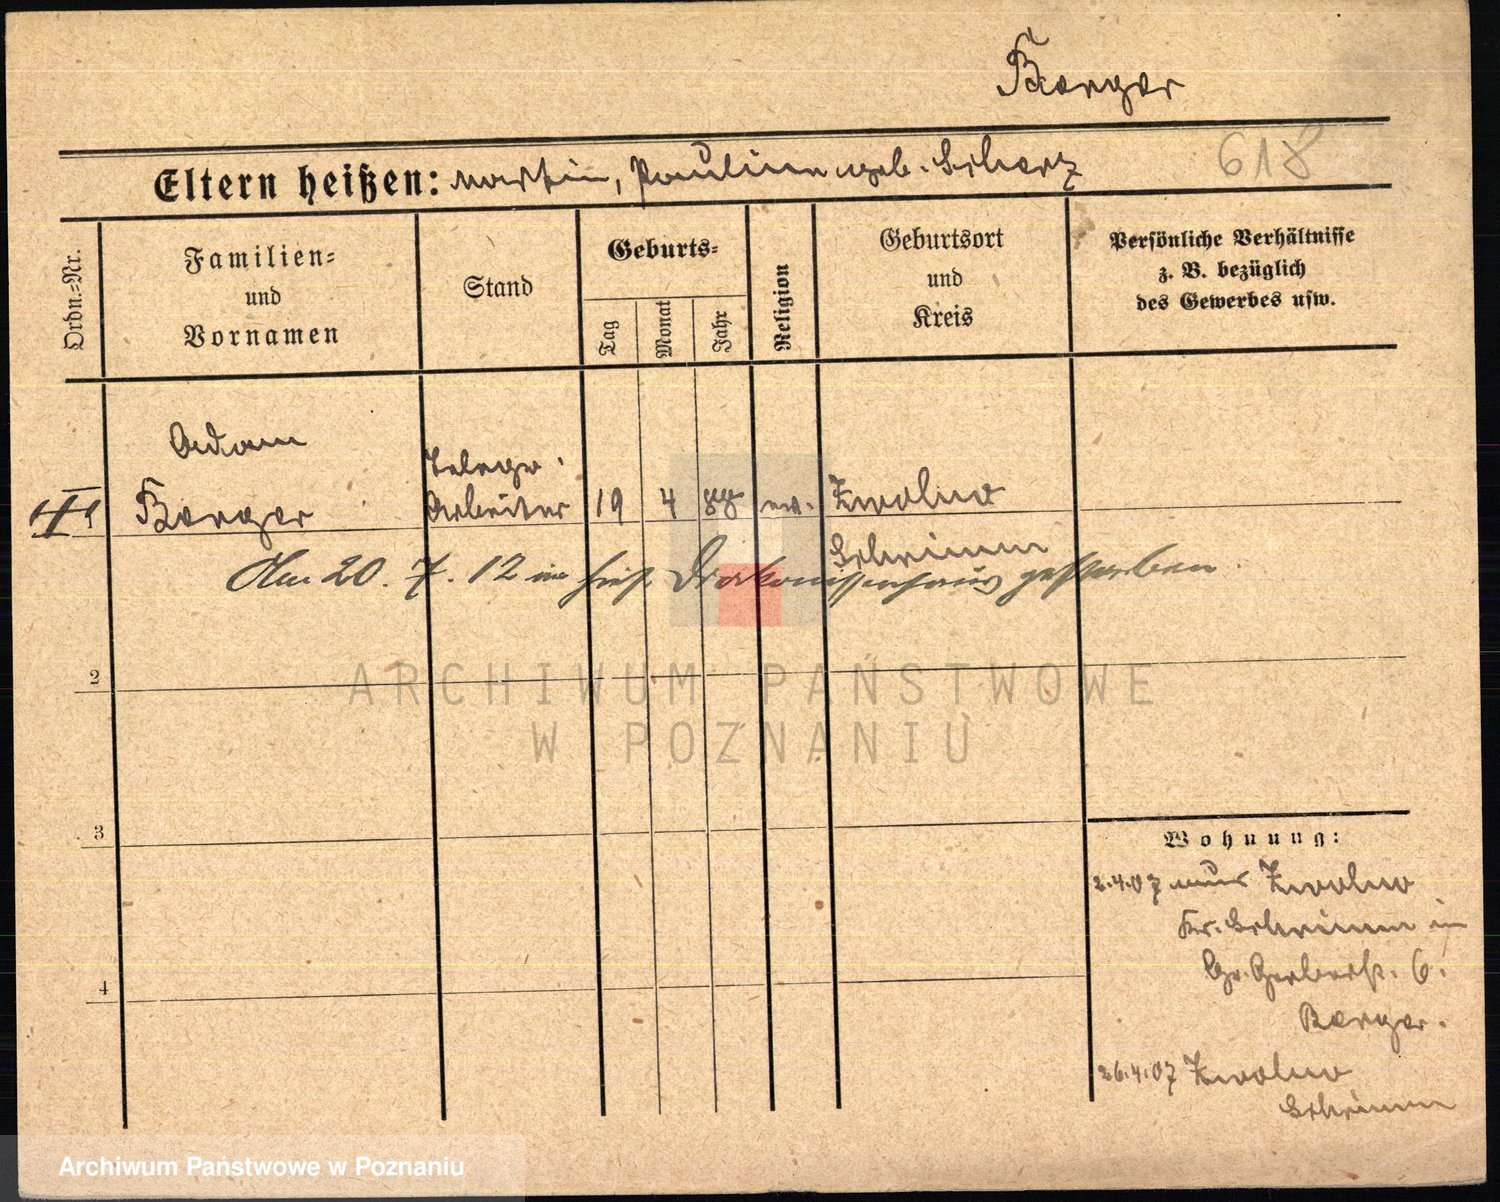 Berger
618
Eltern heißen: Martin, Pauline geb. Scherz
Ordn.-Nr.
Familien-
und
Vornamen
Stand
Geburts-
Tag
Monat
Jahr
Religion
Geburtsort
und
Kreis
Persönliche Verhältnisse
z. B. bezüglich
des Gewerbes usw.
Adam
Berger
Telegr.
Arbeiter
1
19 4 88 ev.
Zwolno
Schrimm
Am 20. 7. 12 im hies. Diakonissenhaus gestorben.
2
ARCHIWUM PAŃSTWOWE
W POZNANIU
3
4
Wohnung:
2.4.07 aus Zwolno
Kr. Schrimm in
Gr. Gerberstr. 6.
Berger.
26.4.07 Zwolno
Schrimm
Archiwum Państwowe w Poznaniu